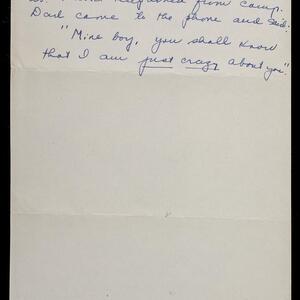 from camp.
Dad came to the phone and said:
"Mine boy, you shall know
that I am just crazy about you".